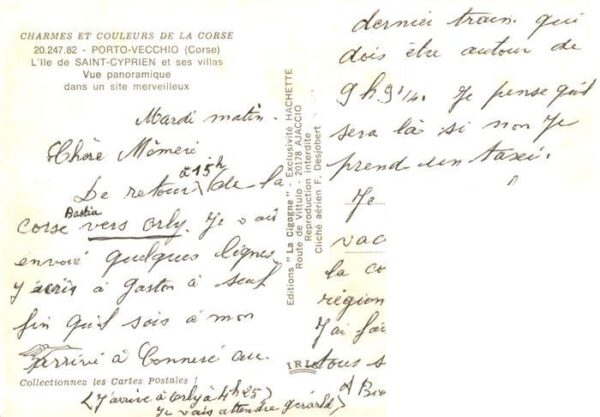 CHARMES ET COULEURS DE LA CORSE
20.247.82 - PORTO-VECCHIO (Corse)
L'Ile de SAINT-CYPRIEN et ses villas
Vue panoramique
dans un site merveilleux
Mardi matin.
Chère Mémère
à 15h
De retour de la
Bastia
Corse vers Orly. Je vous
envoie quelques lignes
J'écris à Gaston à seul
fin qu'il sois à mon
arrivé à Connerré au
Collectionnez les Cartes Postales !
(J'arrive à Orly à 4h25)
Je vais attendre gérald
Editions "La Cigogne" - Exclusivité HACHETTE
Route de Vittulo - 20178 AJACCIO
Reproduction interdite
Cliché aérien F. Desjobert
IRIS
dernier train qui
dois être autour de
9h 9¼. Je pense qu'il
sera là si non Je
prend un taxi.
Je
vac
la co
région
J'ai fai
tous s